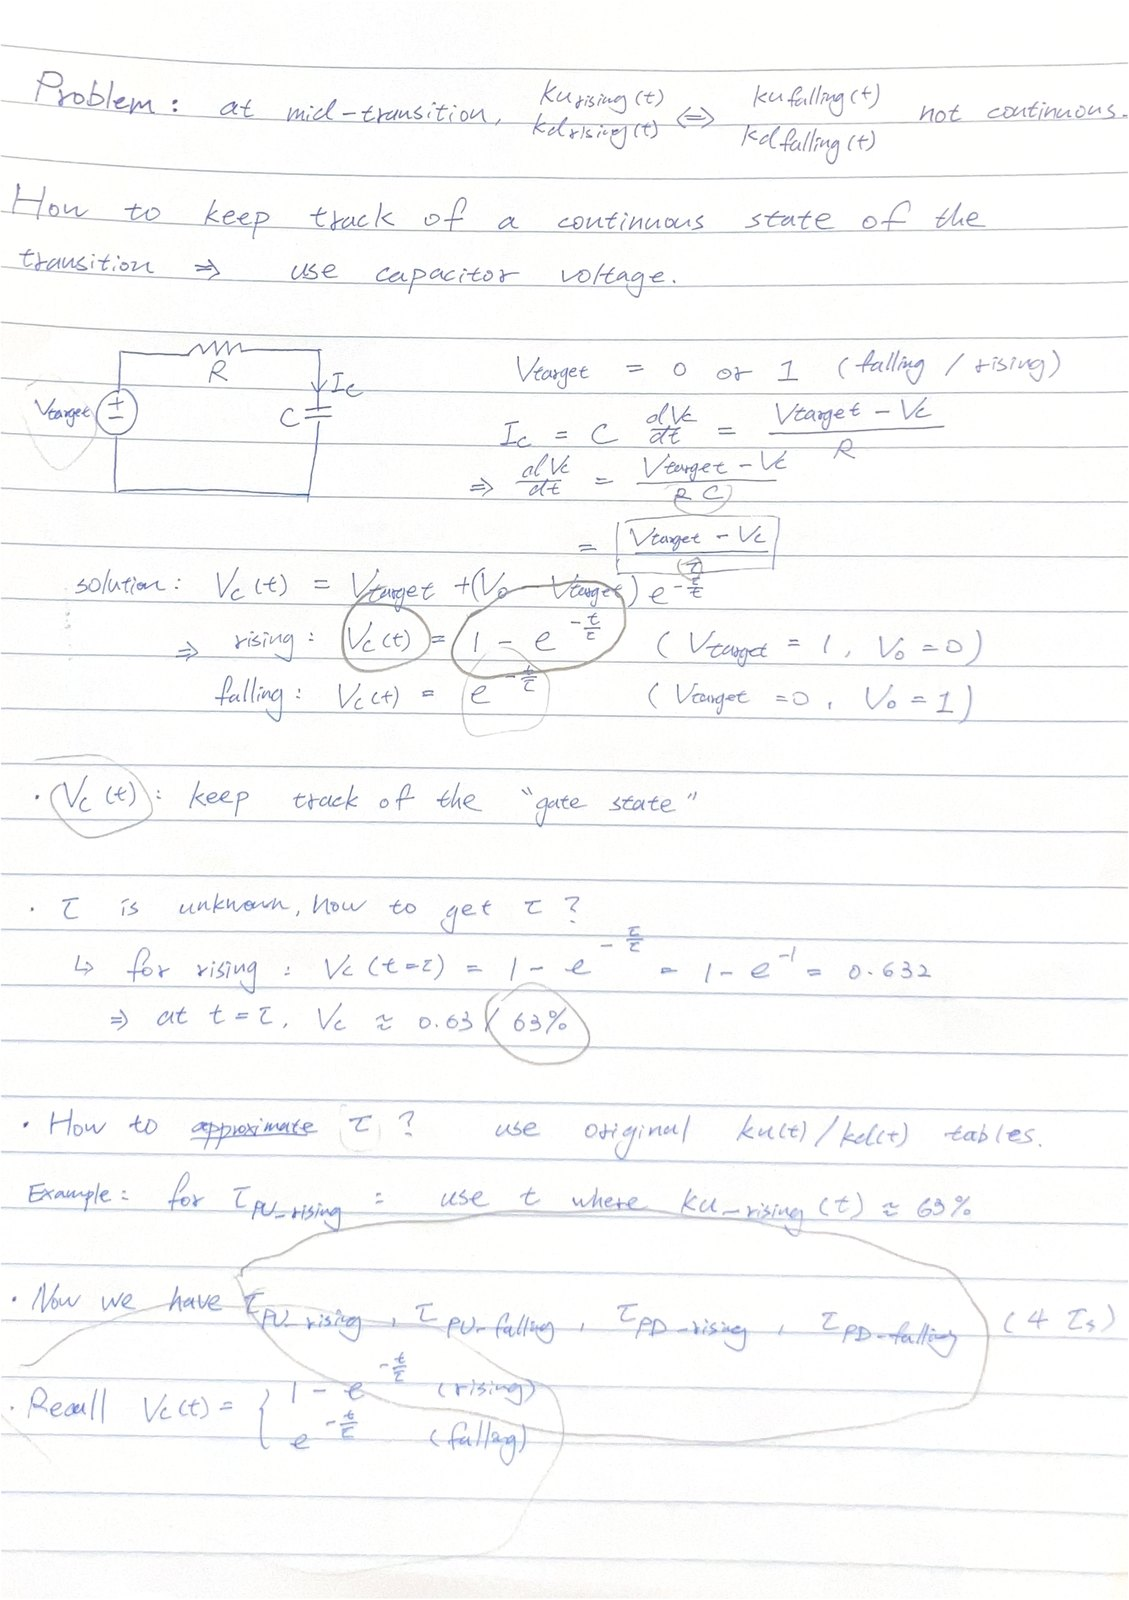 Problem: at mid-transition, kurising(t) ⇔ kufalling(t) not continuous.
kdrising(t) kdfalling(t)
How to keep track of a continuous state of the
transition ⇒ use capacitor voltage.
R
Ic
Vtarget
+
−
C
Vtarget = 0 or 1 (falling / rising)
Ic = C dVc/dt = (Vtarget - Vc)/R
⇒ dVc/dt = (Vtarget - Vc)/(RC)
= (Vtarget - Vc)/τ
solution: Vc(t) = Vtarget + (V0 - Vtarget) e^(-t/τ)
⇒ rising: Vc(t) = 1 - e^(-t/τ) (Vtarget = 1, V0 = 0)
falling: Vc(t) = e^(-t/τ) (Vtarget = 0, V0 = 1)
· Vc(t): keep track of the "gate state"
· τ is unknown, how to get τ ?
↳ for rising: Vc(t=τ) = 1 - e^(-τ/τ) = 1 - e^-1 = 0.632
⇒ at t = τ, Vc ≈ 0.63 / 63%
· How to approximate τ ? use original ku(t)/kd(t) tables.
Example: for τPU_rising : use t where ku_rising(t) ≈ 63%
· Now we have τPU_rising, τPU-falling, τPD-rising, τPD-falling (4 τs)
· Recall Vc(t) = { 1 - e^(-t/τ) (rising)
e^(-t/τ) (falling)